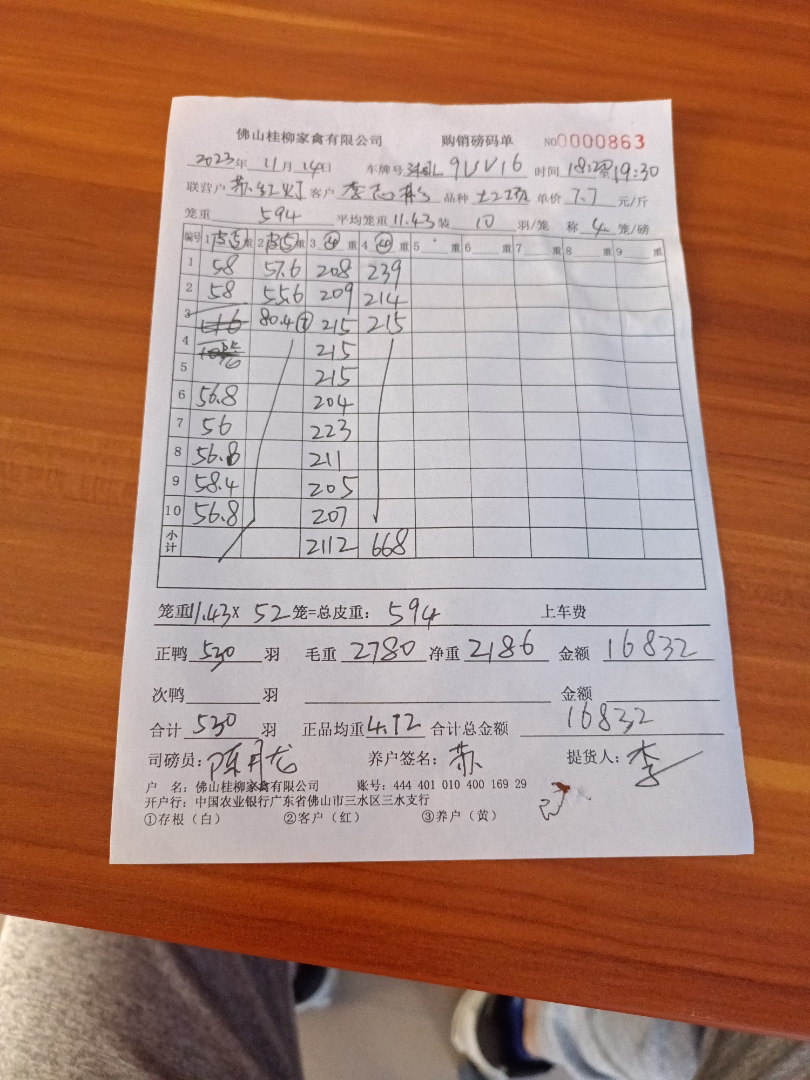 佛山桂柳家禽有限公司 购销磅码单 NO0000863
2023年 11月 14日 车牌号 9UV16 时间 19:30
联营户 苏红灯 客户 李志 品种 单价 7.7 元/斤
笼重 594 平均笼重 11.43 装 10 羽/笼 称 4 笼/磅
编号 1 皮⑤ 重 2 皮⑤ 重 3 ④ 重 4 ④ 重 5 重 6 重 7 重 8 重 9 重
1 58 57.6 208 239
2 58 55.6 209 214
3 80.4⑦ 215 215
4 215
5 215
6 56.8 204
7 56 223
8 56.8 211
9 58.4 205
10 56.8 207
小计 2112 668
笼重11.43× 52笼=总皮重: 594 上车费
正鸭 530 羽 毛重 2780 净重 2186 金额 16832
次鸭 羽 金额
合计 530 羽 正品均重 4.12 合计总金额 16832
司磅员: 陈月龙 养户签名: 苏 提货人: 李
户 名: 佛山桂柳家禽有限公司 账号: 444 401 010 400 169 29
开户行: 中国农业银行广东省佛山市三水区三水支行
①存根(白) ②客户(红) ③养户(黄)